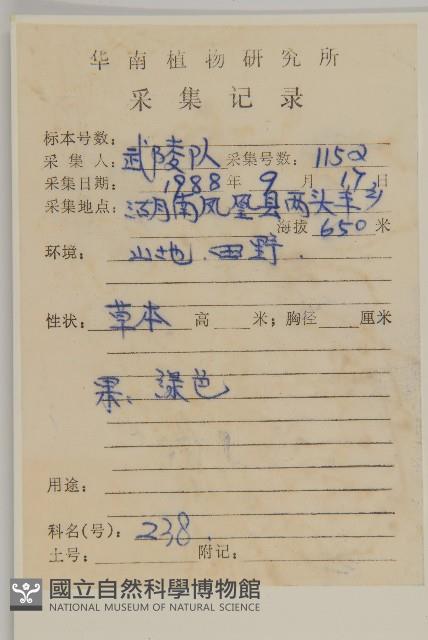 华南植物研究所
采集记录
标本号数：
采集人：武陵队 采集号数：1152
采集日期：1988年9月17日
采集地点：湖南凤凰县两头羊乡
海拔650米
环境：山地.田野.
性状：草本 高 米；胸径 厘米
果、绿色
用途：
科名(号)：238.
土号： 附记：
國立自然科學博物館
NATIONAL MUSEUM OF NATURAL SCIENCE